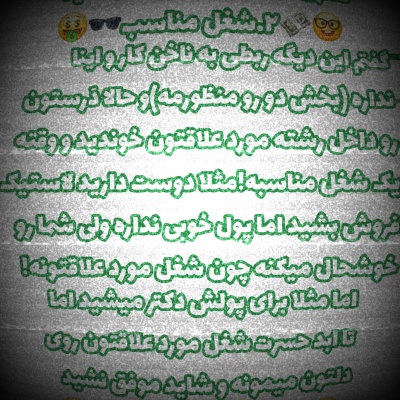 🤓💸۲.شغل مناسب🕶️🤑
گفتم این دیگه ربطی به ناخن کار و اینا
نداره (بخش دو رو منظورمه)و حالا درستون
رو داخل رشته مورد علاقتون خوندید و وقته
یک شغل مناسبه!مثلا دوست دارید لاستیک
فروش بشید اما پول خوبی نداره ولی شما رو
خوشحال میکنه چون شغل مورد علاقتونه!
اما مثلا برای پولش دکتر میشید اما
تا ابد حسرت شغل مورد علاقتون روی
دلتون میمونه و شاید موفق نشید